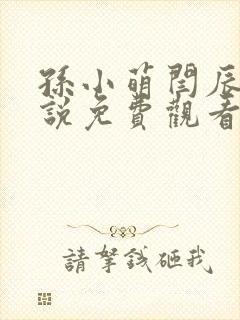 孫小萌閆辰
說免費觀看
請拏錢砸我